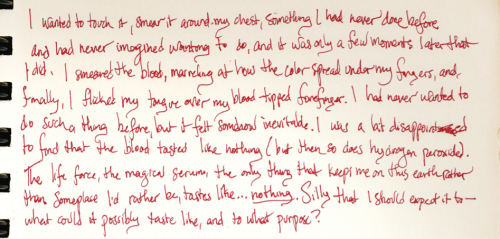 I wanted to touch it, smear it around my chest, something I had never done before
and had never imagined wanting to do, and it was only a few moments later that
I did. I smeared the blood, marveling at how the color spread under my fingers, and,
finally, I flicked my tongue over my blood tipped forefinger. I had never wanted to
do such a thing before, but it felt somehow inevitable. I was a bit disappointed
to find that the blood tasted like nothing (but then so does hydrogen peroxide).
The life force, the magical serum, the only thing that keeps me on this earth rather
than someplace I'd rather be, tastes like... nothing. Silly that I should expect it to—
what could it possibly taste like, and to what purpose?